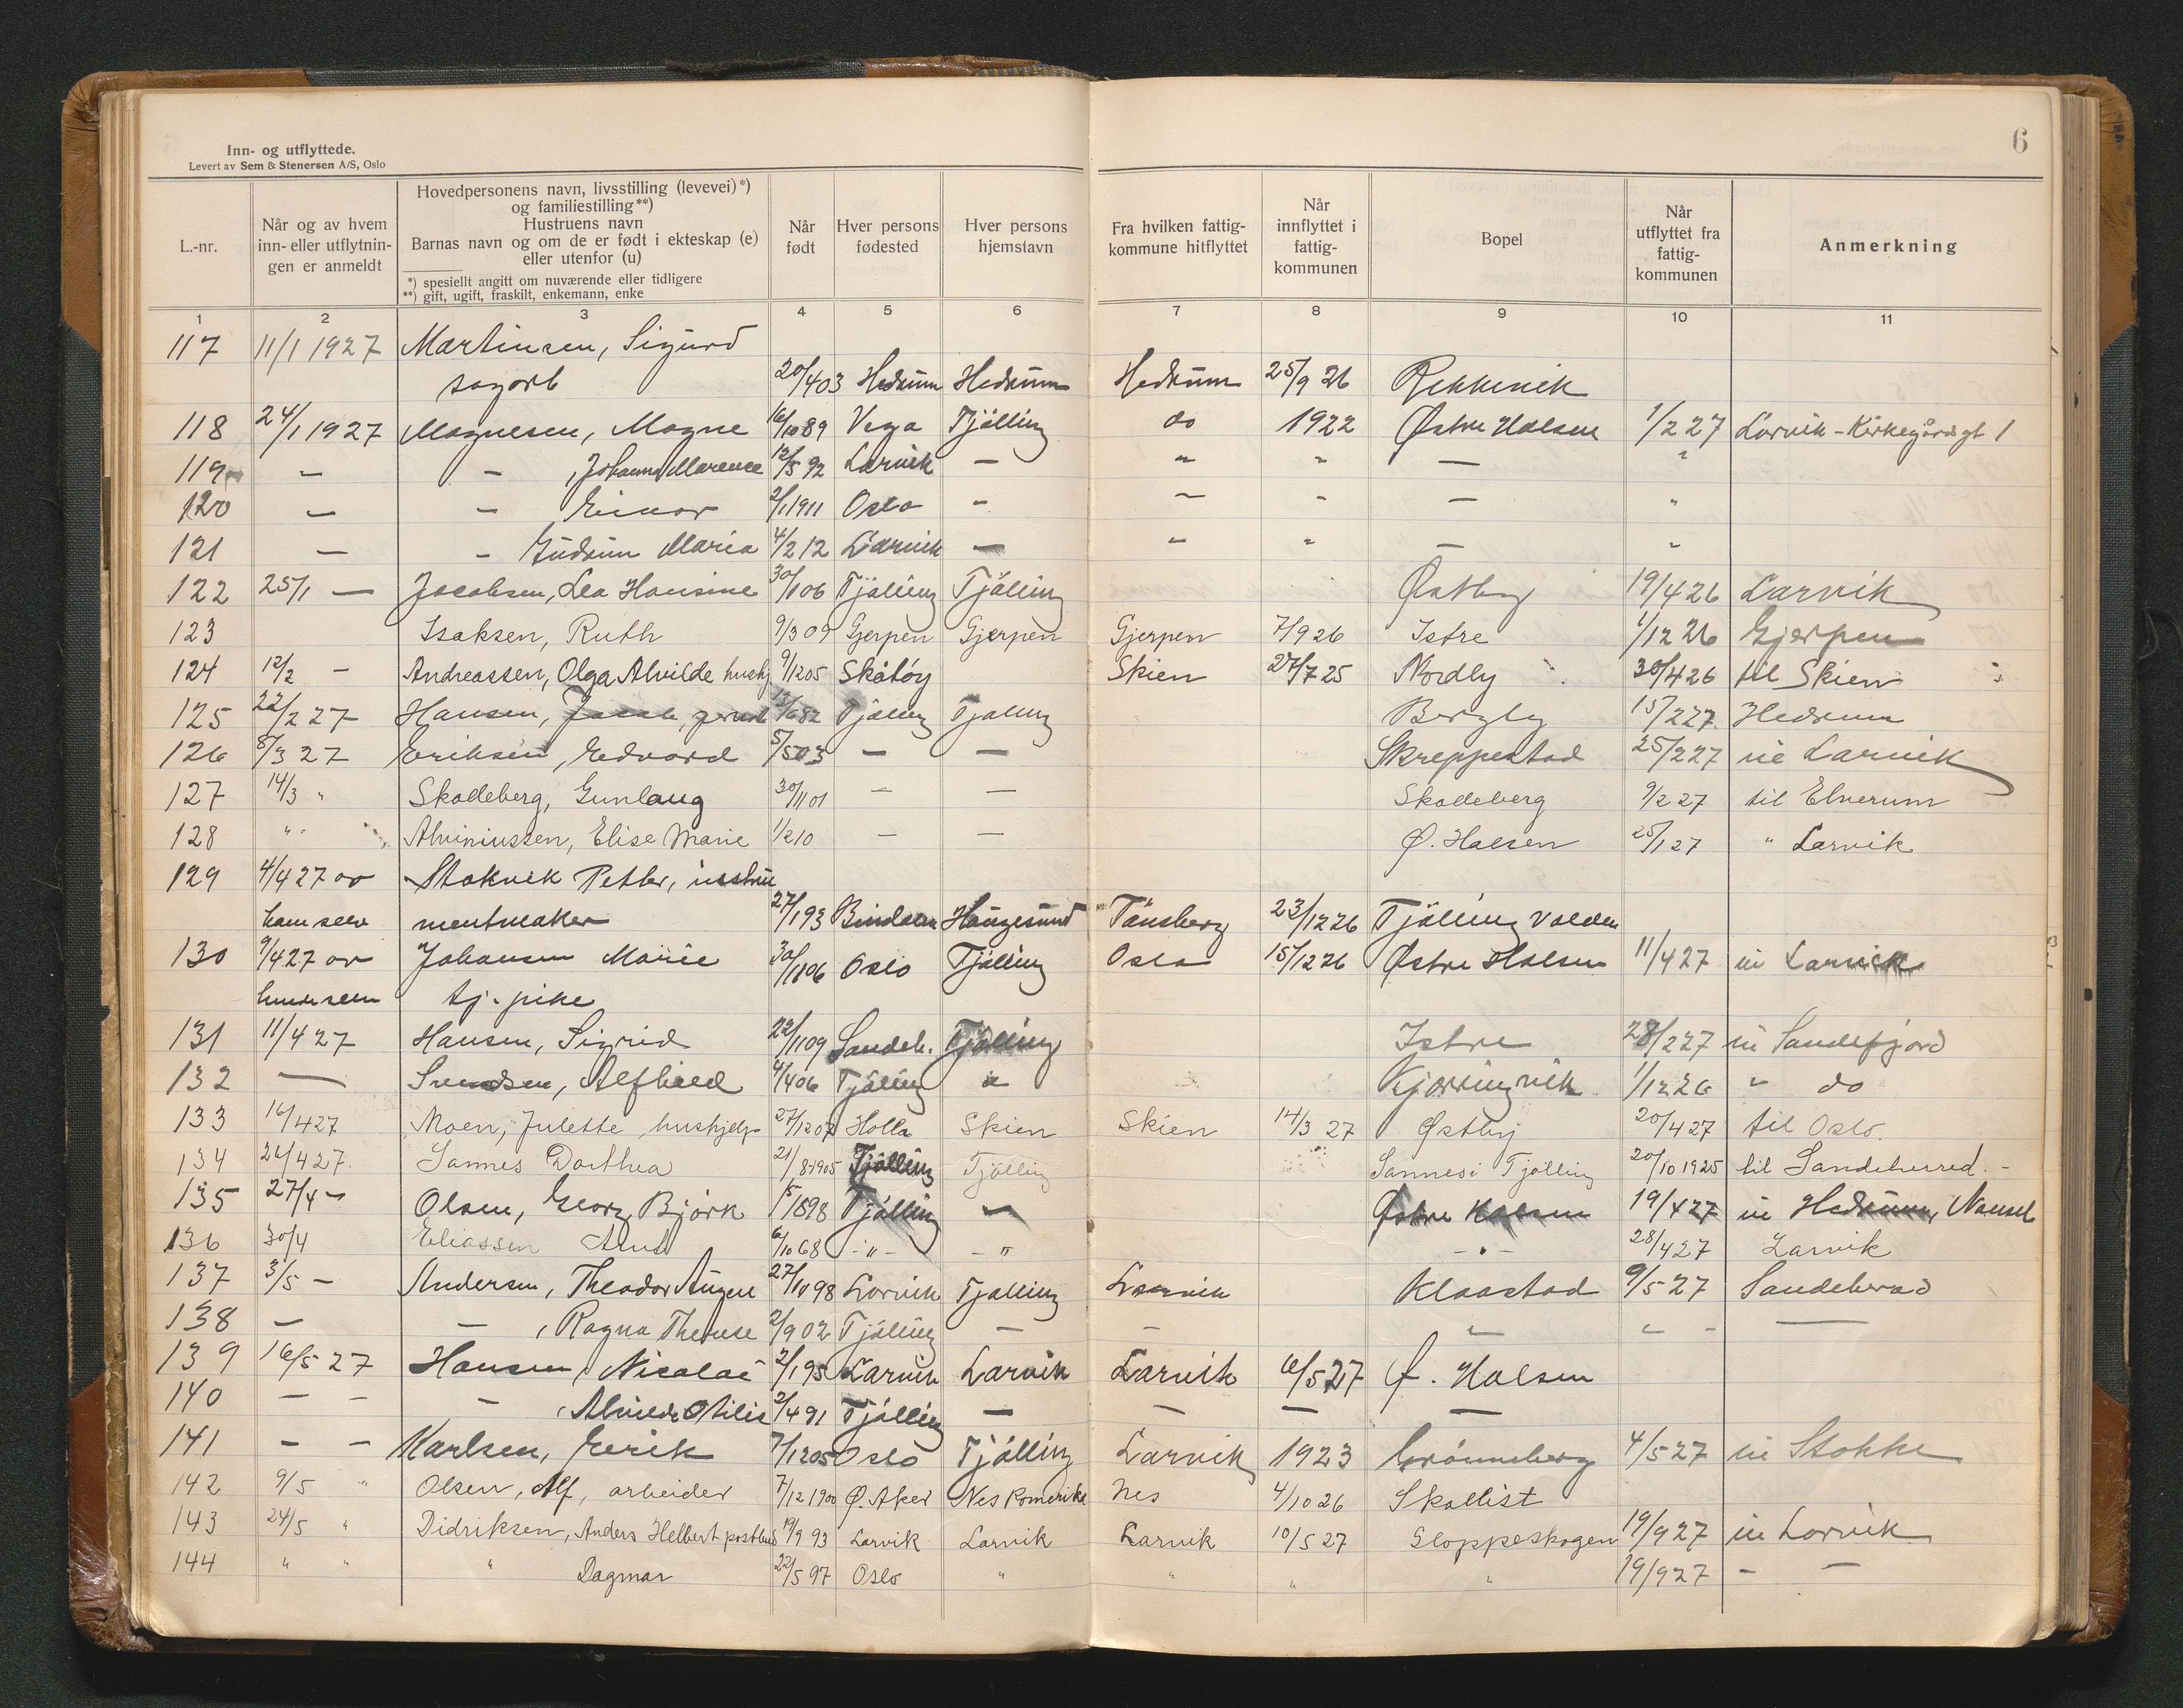 6
Inn- og utflyttede.
Levert av Sem & Stenersen A/S, Oslo
L.-nr.
Når og av hvem inn- eller utflytnin-gen er anmeldt
Hovedpersonens navn, livsstilling (levevei)*) og familiestilling**)
Hustruens navn
Barnas navn og om de er født i ekteskap (e) eller utenfor (u)
*) spesiellt angitt om nuværende eller tidligere
**) gift, ugift, fraskilt, enkemann, enke
Når født
Hver persons fødested
Hver persons hjemstavn
Fra hvilken fattig-kommune hitflyttet
Når innflyttet i fattig-kommunen
Bopel
Når utflyttet fra fattig-kommunen
Anmerkning
1 2 3 4 5 6 7 8 9 10 11
117 11/1 1927 Martinsen, Sigurd
sagarb 20/4 03 Hedrum Hedrum Hedrum 25/9 26 Rekkevik
118 24/1 1927 Magnesen, Magne 16/10 89 Vega Tjölling do 1922 Østre Halsen 1/2 27 Larvik - Kirkegårdsgt 1
119 — — , Johanne Marence 12/5 92 Larvik — " " — "
120 — — Einar 2/1 1911 Oslo — — " — "
121 — — Gudrun Maria 4/2 12 Larvik — " " — "
122 25/1 — Jacobsen, Lea Hansine 30/1 06 Tjölling Tjölling Østby 19/4 26 Larvik
123 Isaksen, Ruth 9/3 09 Gjerpen Gjerpen Gjerpen 7/9 26 Istre 1/12 26 Gjerpen
124 12/2 — Andreassen, Olga Alvilde hushj 9/12 05 Skåtöy Skien 27/7 25 Nordly 30/4 26 til Skien
125 22/2 27 Hansen, Jacob, 13/6 82 Tjölling Tjölling Bergly 15/2 27 Hedrum
126 5/3 27 Eriksen, Edvard 5/5 03 — — Skreppestad 25/2 27 in Larvik
127 14/3 " Skadeberg, Gunlaug 30/11 01 — — Skadeberg 9/2 27 til Elverum
128 " " Alviniussen, Elise Marie 1/2 10 — — Ø. Halsen 25/1 27 " Larvik
129 4/4 27 av Stokvik Petter, instru
ham selv mentmaker 27/1 93 Bindalen Haugesund Tönsberg 23/12 26 Tjölling Valden
130 9/4 27 av Johansen Marie 30/11 06 Oslo Tjölling Oslo 15/12 26 Østre Halsen 11/4 27 in Larvik
hende selv tj. pike
131 11/4 27 Hansen, Sigrid 22/11 09 Sandeh. Tjölling Istre 28/2 27 in Sandefjord
132 — Svendsen, Alfhild 4/4 06 Tjölling " Kjørringvik 1/12 26 " do
133 16/4 27 Moen, Julette, hushjelp 27/12 07 Holla Skien Skien 14/3 27 Østby 20/4 27 til Oslo.
134 26/4 27. Sannes Dorthea 21/8-1905 Tjölling Tjölling Sannes i Tjölling 20/10 1925 til Sandeherred. -
135 27/4 — Olsen, Georg Björk 1898 Tjölling " Østre Halsen 19/4 27 in Hedrum, Nanset
136 30/4 Eliassen Arnt 6/10 68 - " - - " - " - 28/4 27 Larvik
137 3/5 — Andersen, Theodor August 27/11 98 Larvik Tjölling Larvik Klaastad 9/5 27 Sandeherad
138 — — , Ragna Therese 2/9 02 Tjölling — — " " - —
139 16/5 27 Hansen, Nicolai 2/1 95 Larvik Larvik Larvik 6/5 27 Ø. Halsen
140 — — — , Alvilde Otilie 2/4 91 Tjölling — — — —
141 — — Karlsen, Erik 7/12 05 Oslo Tjölling Larvik 1923 Grönneberg 4/5 27 in Stokke
142 9/5 " Olsen, Alf, arbeider 7/12 1900 Ø. Aker Nes Romerike Nes 4/10 26 Skallist
143 24/5 " Didriksen, Anders Helbert postbud 19/9 93 Larvik Larvik Larvik 10/5 27 Gloppeskogen 19/9 27 in Larvik
144 " " " Dagmar 22/5 97 Oslo " " " " 19/9 27 — —